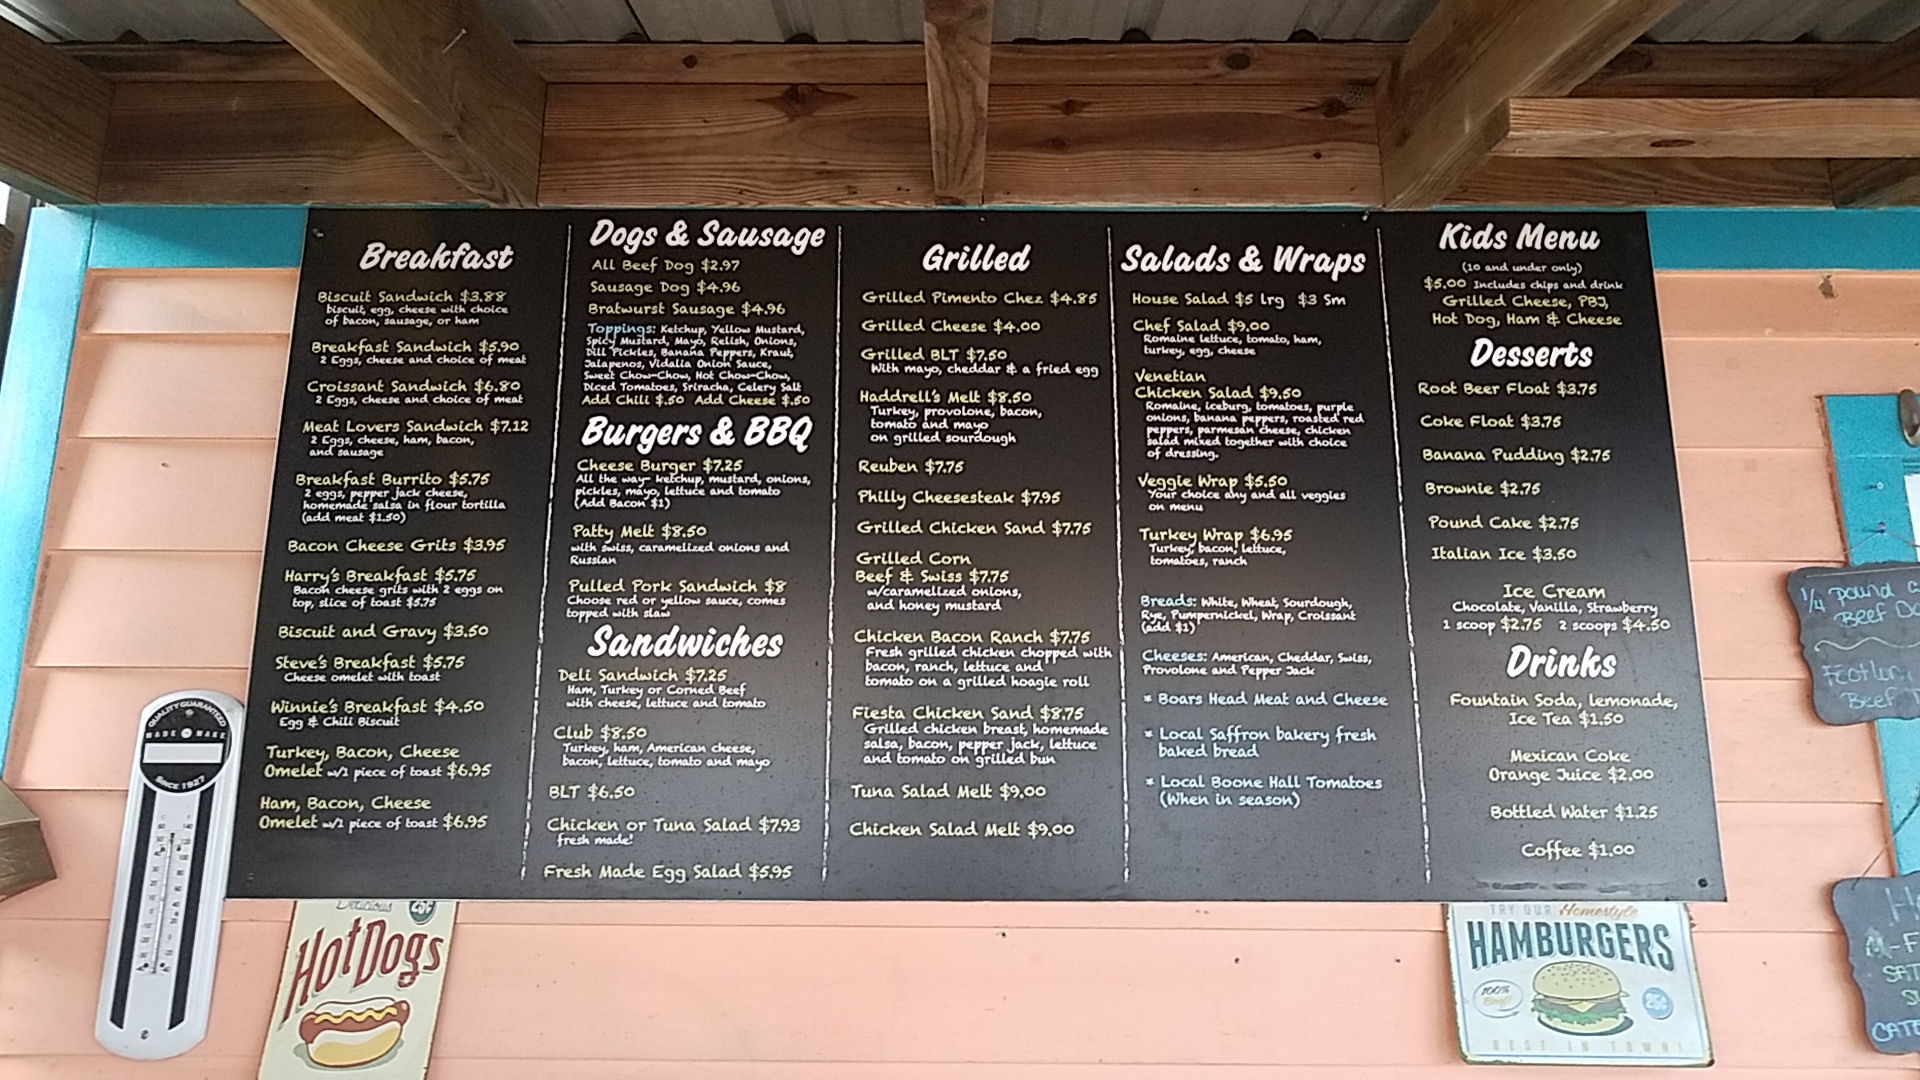 Breakfast
Biscuit Sandwich $3.88
biscuit, egg, cheese with choice
of bacon, sausage, or ham
Breakfast Sandwich $5.90
2 Eggs, cheese and choice of meat
Croissant Sandwich $6.80
2 Eggs, cheese and choice of meat
Meat Lovers Sandwich $7.12
2 Eggs, cheese, ham, bacon,
and sausage
Breakfast Burrito $5.75
2 eggs, pepper jack cheese,
homemade salsa in flour tortilla
(add meat $1.50)
Bacon Cheese Grits $3.95
Harry's Breakfast $5.75
Bacon cheese grits with 2 eggs on
top, slice of toast $5.75
Biscuit and Gravy $3.50
Steve's Breakfast $5.75
Cheese omelet with toast
Winnie's Breakfast $4.50
Egg & Chili Biscuit
Turkey, Bacon, Cheese
Omelet w/1 piece of toast $6.95
Ham, Bacon, Cheese
Omelet w/1 piece of toast $6.95
Dogs & Sausage
All Beef Dog $2.97
Sausage Dog $4.96
Bratwurst Sausage $4.96
Toppings: Ketchup, Yellow Mustard,
Spicy Mustard, Mayo, Relish, Onions,
Dill Pickles, Banana Peppers, Kraut,
Jalapenos, Vidalia Onion Sauce,
Sweet Chow-Chow, Hot Chow-Chow,
Diced Tomatoes, Sriracha, Celery Salt
Add Chili $.50 Add Cheese $.50
Burgers & BBQ
Cheese Burger $7.25
All the way- ketchup, mustard, onions,
pickles, mayo, lettuce and tomato
(Add Bacon $1)
Patty Melt $8.50
with swiss, caramelized onions and
Russian
Pulled Pork Sandwich $8
Choose red or yellow sauce, comes
topped with slaw
Sandwiches
Deli Sandwich $7.25
Ham, Turkey or Corned Beef
with cheese, lettuce and tomato
Club $8.50
Turkey, ham, American cheese,
bacon, lettuce, tomato and mayo
BLT $6.50
Chicken or Tuna Salad $7.93
fresh made!
Fresh Made Egg Salad $5.95
Grilled
Grilled Pimento Chez $4.85
Grilled Cheese $4.00
Grilled BLT $7.50
With mayo, cheddar & a fried egg
Haddrell's Melt $8.50
Turkey, provolone, bacon,
tomato and mayo
on grilled sourdough
Reuben $7.75
Philly Cheesesteak $7.95
Grilled Chicken Sand $7.75
Grilled Corn
Beef & Swiss $7.75
w/caramelized onions,
and honey mustard
Chicken Bacon Ranch $7.75
Fresh grilled chicken chopped with
bacon, ranch, lettuce and
tomato on a grilled hoagie roll
Fiesta Chicken Sand $8.75
Grilled chicken breast, homemade
salsa, bacon, pepper jack, lettuce
and tomato on grilled bun
Tuna Salad Melt $9.00
Chicken Salad Melt $9.00
Salads & Wraps
House Salad $5 lrg $3 Sm
Chef Salad $9.00
Romaine lettuce, tomato, ham,
turkey, egg, cheese
Venetian
Chicken Salad $9.50
Romaine, iceburg, tomatoes, purple
onions, banana peppers, roasted red
peppers, parmesan cheese, chicken
salad mixed together with choice
of dressing.
Veggie Wrap $5.50
Your choice any and all veggies
on menu
Turkey Wrap $6.95
Turkey, bacon, lettuce,
tomatoes, ranch
Breads: White, Wheat, Sourdough,
Rye, Pumpernickel, Wrap, Croissant
(add $1)
Cheeses: American, Cheddar, Swiss,
Provolone and Pepper Jack
* Boars Head Meat and Cheese
* Local Saffron bakery fresh
baked bread
* Local Boone Hall Tomatoes
(When in season)
Kids Menu
(10 and under only)
$5.00 Includes chips and drink
Grilled Cheese, PBJ,
Hot Dog, Ham & Cheese
Desserts
Root Beer Float $3.75
Coke Float $3.75
Banana Pudding $2.75
Brownie $2.75
Pound Cake $2.75
Italian Ice $3.50
Ice Cream
Chocolate, Vanilla, Strawberry
1 scoop $2.75 2 scoops $4.50
Drinks
Fountain Soda, lemonade,
Ice Tea $1.50
Mexican Coke
Orange Juice $2.00
Bottled Water $1.25
Coffee $1.00
QUALITY GUARANTEED
MADE MAKE
SINCE 1927
Delicious 25¢
Hot Dogs
TRY OUR Homestyle
HAMBURGERS
100%
Beef!
25¢
BEST IN TOWN!
1/4 pound
Beef
Beef